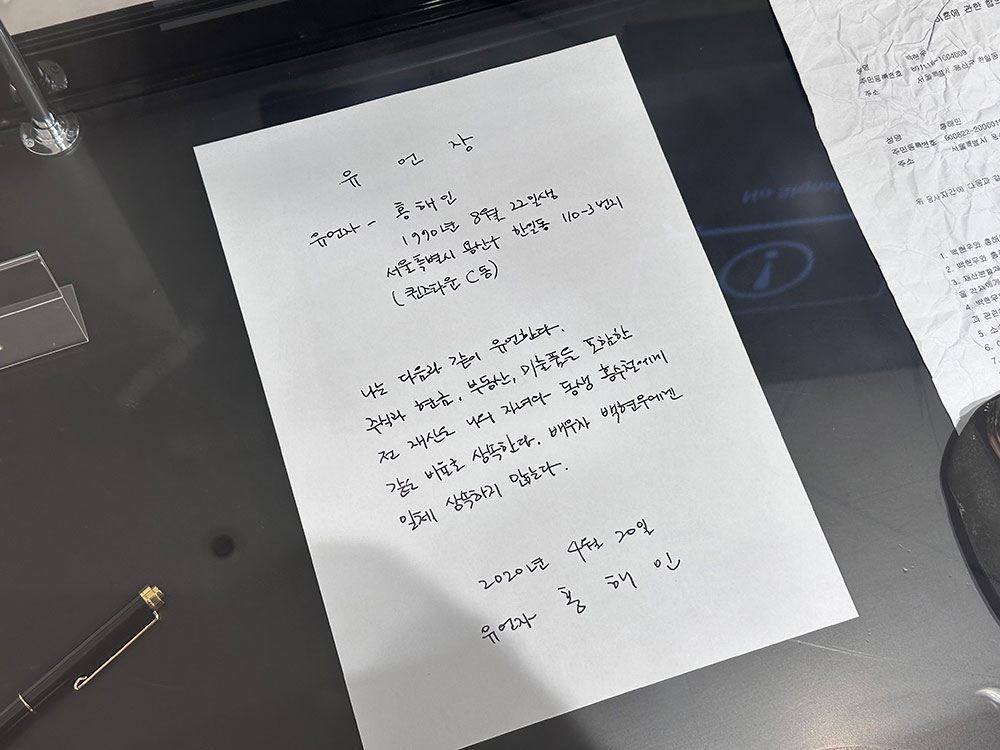 유 언 장
유언자 - 홍 해 인
1990년 8월 22일생
서울특별시 용산구 한일동 110-3번지
(퀸즈타운 C동)
나는 다음과 같이 유언한다.
주식과 현금, 부동산, 미술품을 포함한
전 재산은 나의 자녀와 동생 홍수철에게
같은 비율로 상속한다. 배우자 백현우에겐
일체 상속하지 않는다.
2020년 4월 20일
유언자 홍 해 인
이혼에 관한 합의
성명 백현우
주민등록번호
주소 서울특별시 용산구 한일동
성명 홍해인
주민등록번호 900822-2000019
주소 서울특별시 용산
위 당사자간에 다음과 같
1. 백현우와 홍해
2. 백현우와 홍
3. 재산분할과
을 각자에게
4. 백현우
과 관련
5. 소
6. 이
7.